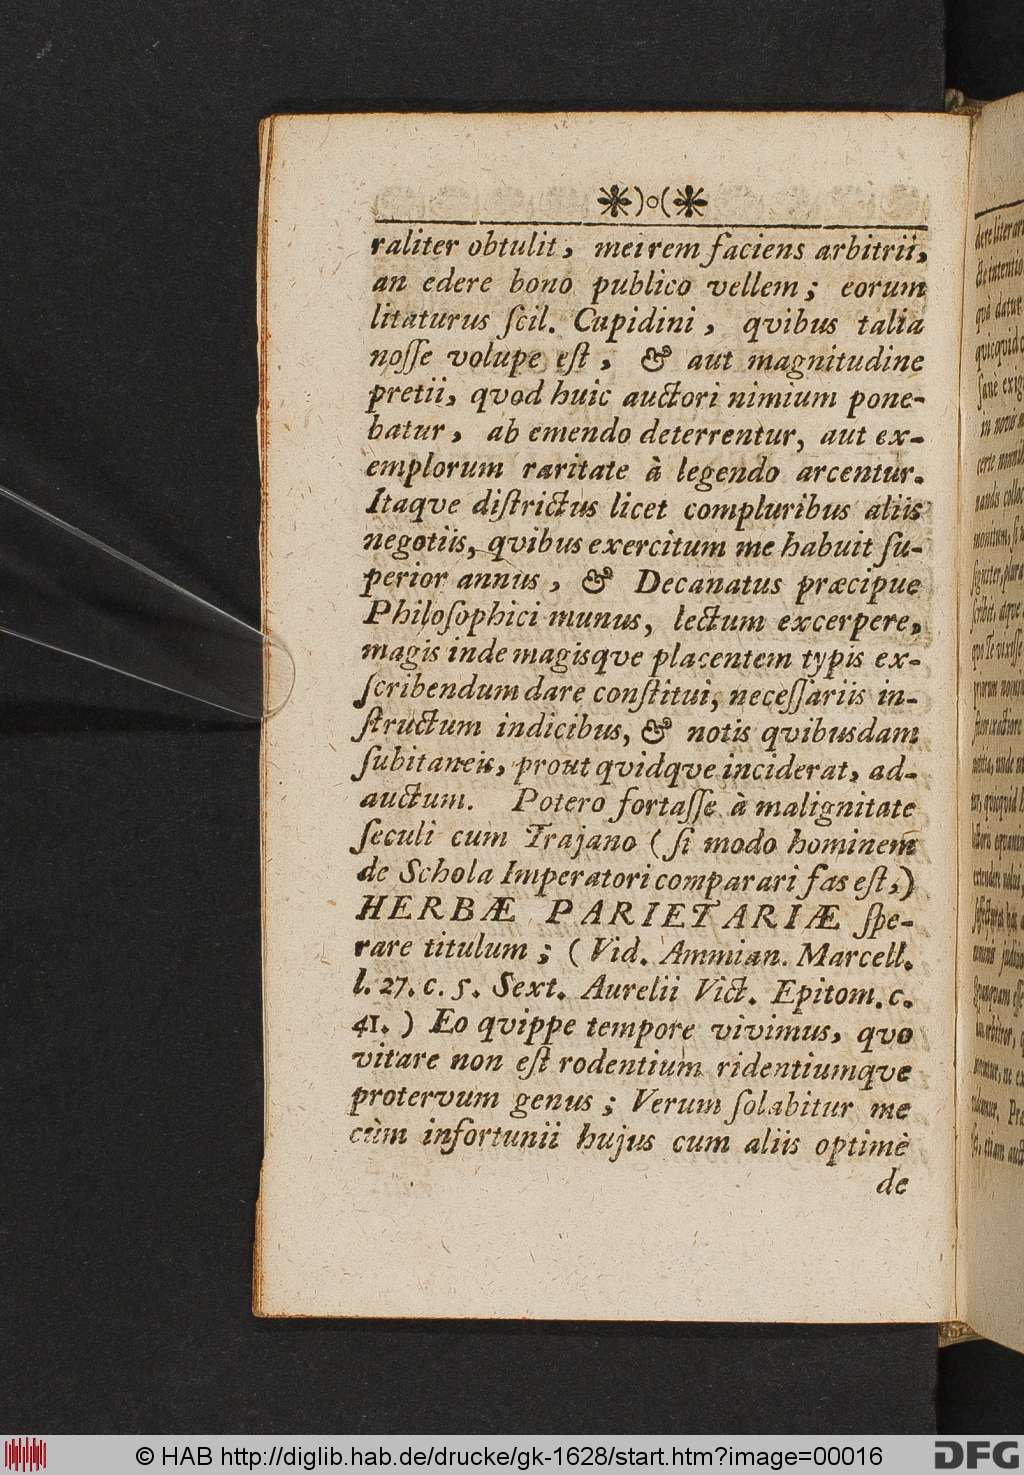 raliter obtulit, mei rem faciens arbitrii,
an edere bono publico vellem; eorum
litaturus ſcil. Cupidini, qvibus talia
noſſe volupe eſt, & aut magnitudine
pretii, qvod huic auctori nimium pone-
batur, ab emendo deterrentur, aut ex-
emplorum raritate à legendo arcentur.
Itaqve diſtrictus licet compluribus aliis
negotiis, qvibus exercitum me habuit ſu-
perior annus, & Decanatus præcipue
Philoſophici munus, lectum excerpere,
magis inde magisqve placentem typis ex-
ſcribendum dare conſtitui, neceſſariis in-
ſtructum indicibus, & notis qvibusdam
ſubitaneis, prout qvidqve inciderat, ad-
auctum. Potero fortaſſe à malignitate
ſeculi cum Trajano (ſi modo hominem
de Schola Imperatori comparari fas eſt,)
HERBÆ PARIETARIÆ ſpe-
rare titulum; (Vid. Ammian. Marcell.
l. 27. c. 5. Sext. Aurelii Vict. Epitom. c.
41.) Eo qvippe tempore vivimus, qvo
vitare non eſt rodentium ridentiumqve
protervum genus; Verum ſolabitur me
cùm infortunii hujus cum aliis optimè
de
© HAB http://diglib.hab.de/drucke/gk-1628/start.htm?image=00016
DFG